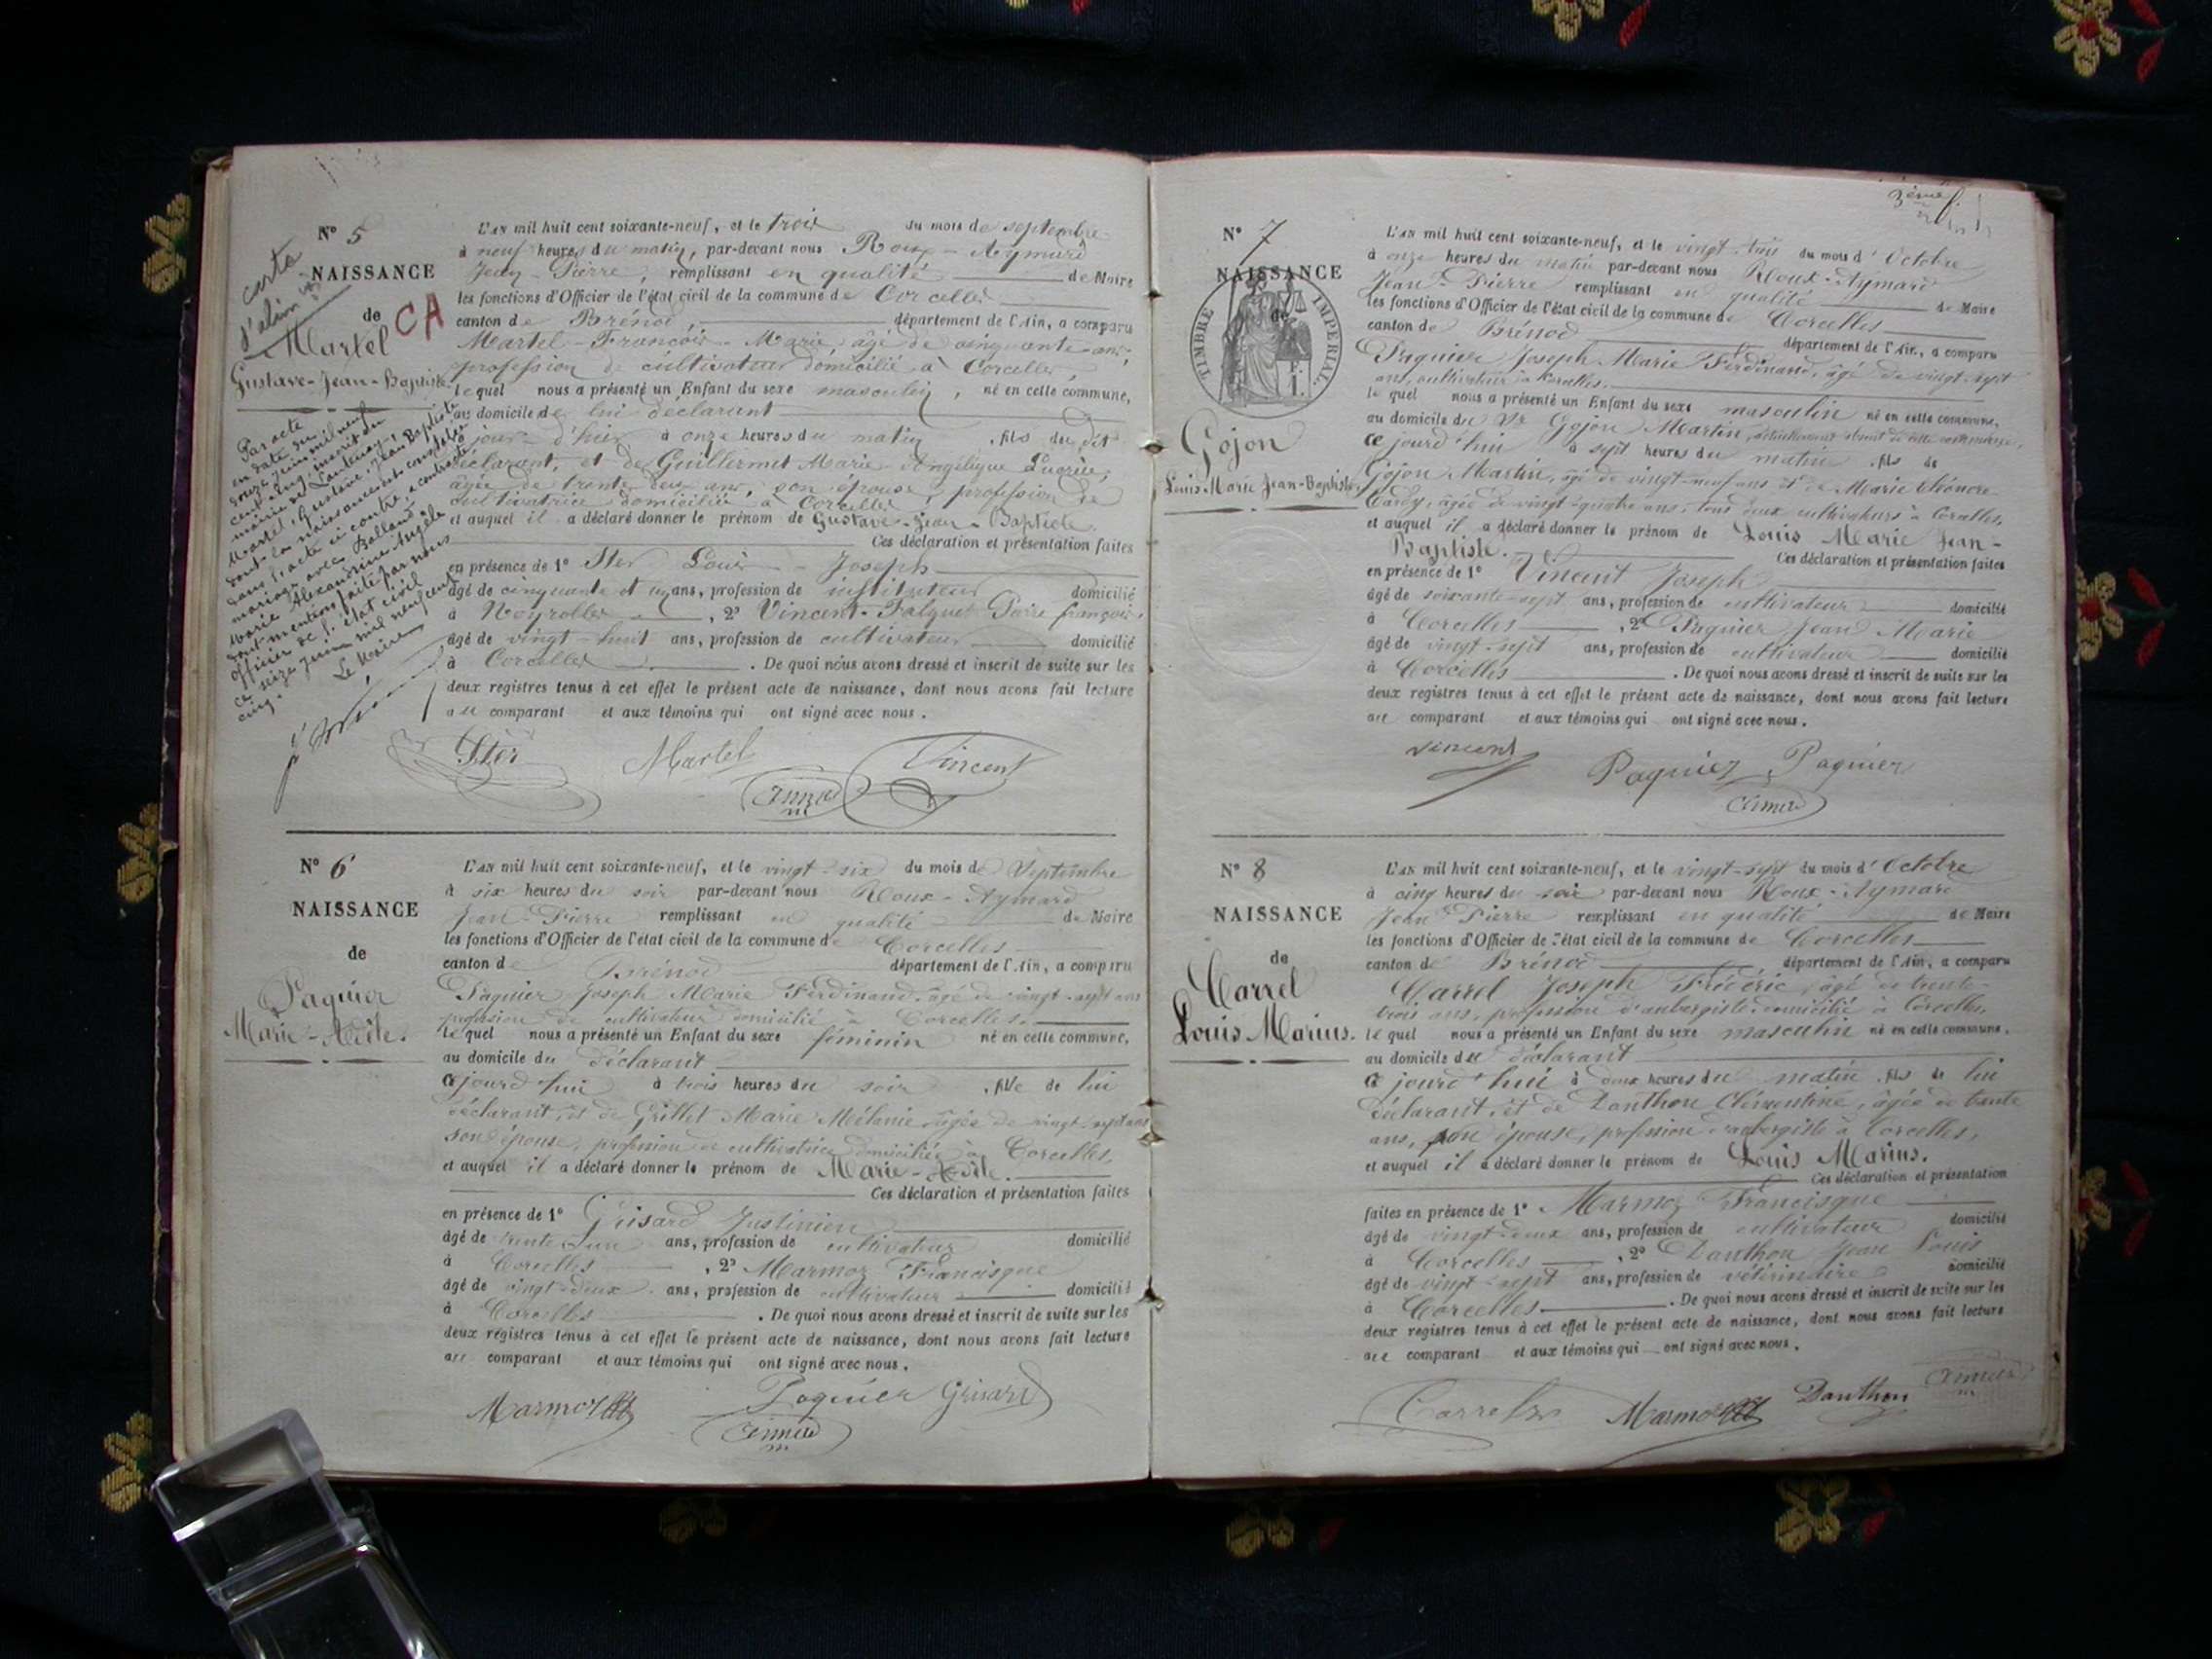 N° 5
NAISSANCE
de
Martel
Gustave-Jean-Baptiste
carta
d'alim
CA
Par acte
en date du
douze juin mil neuf
cent cinq, inscrit en
mairie de
Martel, Gustave, Jean Baptiste
dont la naissance est constatée
dans l'acte ci contre, a contracté
mariage avec Balland
Marie Alexandrine Angèle
dont mention faite par nous
officier de l'état civil
ce seize juin mil neuf cent
cinq.
Le Maire
L'an mil huit cent soixante-neuf, et le trois du mois de septembre
à neuf heures du matin, par-devant nous Roux-Aymard
Jean-Pierre, remplissant en qualité de Maire
les fonctions d'Officier de l'état civil de la commune de Corcelles
canton de Brénod, département de l'Ain, a comparu
Martel-François-Marie âgé de cinquante ans,
profession de cultivateur domicilié à Corcelles,
lequel nous a présenté un Enfant du sexe masculin, né en cette commune,
au domicile de lui déclarant
le jour d'hier à onze heures du matin, fils du dit
déclarant, et de Guillermet Marie-Angélique
âgée de trente deux ans, son épouse, profession de
cultivatrice domiciliée à Corcelles
et auquel il a déclaré donner le prénom de Gustave-Jean-Baptiste.
Ces déclaration et présentation faites
en présence de 1° Ster Louis-Joseph
âgé de cinquante et un ans, profession de instituteur domicilié
à Neyrolles, 2° Vincent-Falquet Pierre françois,
âgé de vingt-huit ans, profession de cultivateur domicilié
à Corcelles. De quoi nous avons dressé et inscrit de suite sur les
deux registres tenus à cet effet le présent acte de naissance, dont nous avons fait lecture
au comparant et aux témoins qui ont signé avec nous.
Ster Martel Vincent
N° 6
NAISSANCE
de
Paquier
Marie-
L'an mil huit cent soixante-neuf, et le vingt-six du mois de Septembre
à six heures du soir par-devant nous Roux-Aymard
Jean-Pierre remplissant en qualité de Maire
les fonctions d'Officier de l'état civil de la commune de Corcelles
canton de Brénod département de l'Ain, a comparu
Paquier Joseph Marie Ferdinand, âgé de vingt-sept ans
profession de cultivateur domicilié à Corcelles,
lequel nous a présenté un Enfant du sexe féminin né en cette commune,
au domicile du déclarant
ce jourd'hui à trois heures du soir, fille de lui
déclarant, et de Grillet Marie Mélanie âgée de vingt-sept ans
son épouse, profession de cultivatrice domiciliée à Corcelles,
et auquel il a déclaré donner le prénom de Marie-
Ces déclaration et présentation faites
en présence de 1° Grisard Justinien
âgé de trente-un ans, profession de cultivateur domicilié
à Corcelles, 2° Marmoz Francisque
âgé de vingt-deux ans, profession de cultivateur domicilié
à Corcelles. De quoi nous avons dressé et inscrit de suite sur les
deux registres tenus à cet effet le présent acte de naissance, dont nous avons fait lecture
au comparant et aux témoins qui ont signé avec nous.
Marmoz Paquier Grisard
N° 7
NAISSANCE
de
TIMBRE IMPERIAL.
Gojon
Louis-Marie Jean-Baptiste,
L'an mil huit cent soixante-neuf, et le vingt-trois du mois d'Octobre
à onze heures du matin par-devant nous Roux-Aymard
Jean-Pierre remplissant en qualité de Maire
les fonctions d'Officier de l'état civil de la commune de Corcelles
canton de Brénod département de l'Ain, a comparu
Paquier Joseph Marie Ferdinand, âgé de vingt-sept
ans, cultivateur à Corcelles,
lequel nous a présenté un Enfant du sexe masculin né en cette commune,
au domicile du Sr Gojon Martin, actuellement absent de cette commune,
ce jourd'hui à sept heures du matin, fils de
Gojon Martin, âgé de vingt-neuf ans et de Marie Eléonore
âgée de vingt-quatre ans, tous deux cultivateurs à Corcelles,
et auquel il a déclaré donner le prénom de Louis Marie Jean-
Baptiste. Ces déclaration et présentation faites
en présence de 1° Vincent Joseph
âgé de soixante-sept ans, profession de cultivateur domicilié
à Corcelles, 2° Paquier Jean Marie
âgé de vingt-sept ans, profession de cultivateur domicilié
à Corcelles. De quoi nous avons dressé et inscrit de suite sur les
deux registres tenus à cet effet le présent acte de naissance, dont nous avons fait lecture
au comparant et aux témoins qui ont signé avec nous.
Vincent Paquier Paquier
N° 8
NAISSANCE
de
Carrel
Louis Marius.
L'an mil huit cent soixante-neuf, et le vingt-sept du mois d'Octobre
à cinq heures du soir par-devant nous Roux-Aymard
Jean Pierre remplissant en qualité de Maire
les fonctions d'Officier de l'état civil de la commune de Corcelles
canton de Brénod département de l'Ain, a comparu
Carrel Joseph Frédéric, âgé de trente-
trois ans, profession d'aubergiste domicilié à Corcelles,
lequel nous a présenté un Enfant du sexe masculin né en cette commune,
au domicile du déclarant
ce jourd'hui à deux heures du matin, fils de lui
déclarant, et de Danthon Clémentine, âgée de trente
ans, son épouse, profession d'aubergiste à Corcelles,
et auquel il a déclaré donner le prénom de Louis Marius.
Ces déclaration et présentation
faites en présence de 1° Marmoz Francisque
âgé de vingt-deux ans, profession de cultivateur domicilié
à Corcelles, 2° Danthon Jean Louis
âgé de vingt-sept ans, profession de vétérinaire domicilié
à Corcelles. De quoi nous avons dressé et inscrit de suite sur les
deux registres tenus à cet effet le présent acte de naissance, dont nous avons fait lecture
au comparant et aux témoins qui ont signé avec nous.
Carrel Marmoz Danthon